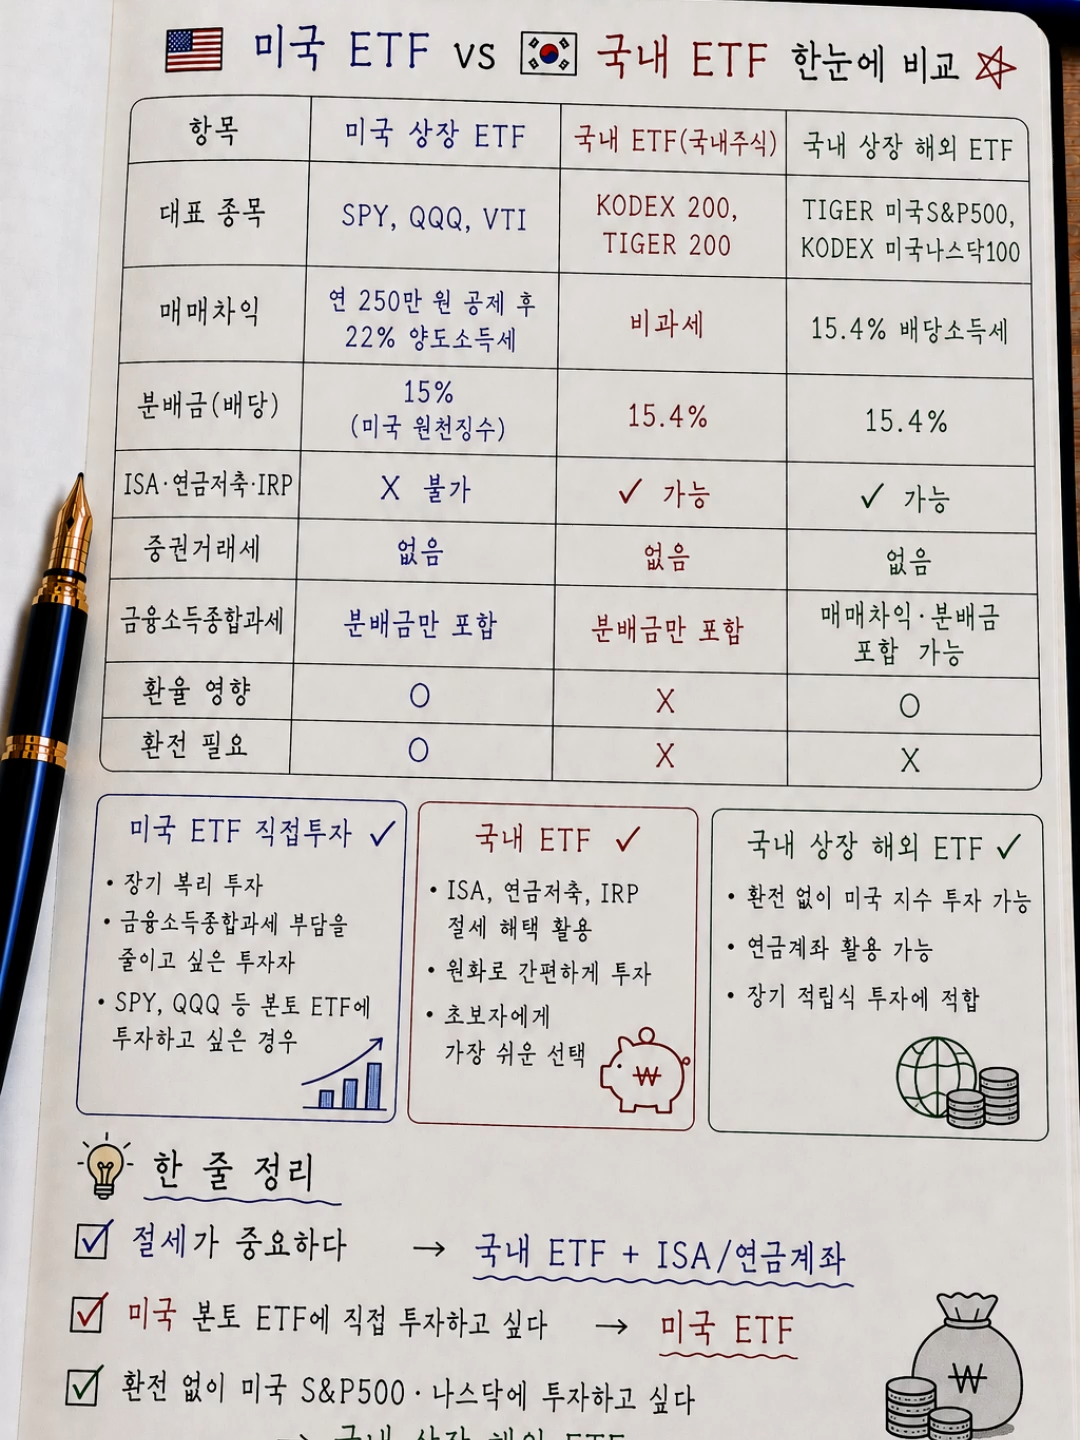 미국 ETF vs 국내 ETF 한눈에 비교
항목 미국 상장 ETF 국내 ETF(국내주식) 국내 상장 해외 ETF
대표 종목 SPY, QQQ, VTI KODEX 200, TIGER 200 TIGER 미국S&P500, KODEX 미국나스닥100
매매차익 연 250만 원 공제 후 22% 양도소득세 비과세 15.4% 배당소득세
분배금(배당) 15% (미국 원천징수) 15.4% 15.4%
ISA·연금저축·IRP X 불가 ✓ 가능 ✓ 가능
증권거래세 없음 없음 없음
금융소득종합과세 분배금만 포함 분배금만 포함 매매차익·분배금 포함 가능
환율 영향 O X O
환전 필요 O X X
미국 ETF 직접투자 ✓
• 장기 복리 투자
• 금융소득종합과세 부담을
줄이고 싶은 투자자
• SPY, QQQ 등 본토 ETF에
투자하고 싶은 경우
국내 ETF ✓
• ISA, 연금저축, IRP
절세 혜택 활용
• 원화로 간편하게 투자
• 초보자에게
가장 쉬운 선택
₩
국내 상장 해외 ETF ✓
• 환전 없이 미국 지수 투자 가능
• 연금계좌 활용 가능
• 장기 적립식 투자에 적합
한 줄 정리
☑ 절세가 중요하다 → 국내 ETF + ISA/연금계좌
☑ 미국 본토 ETF에 직접 투자하고 싶다 → 미국 ETF
☑ 환전 없이 미국 S&P500·나스닥에 투자하고 싶다
→ 국내 상장 해외 ETF
₩